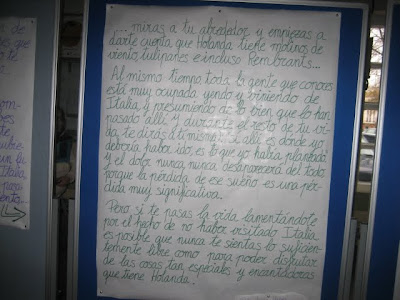 ... miras a tu alrededor y empiezas a
darte cuenta que Holanda tiene molinos de
viento, tulipanes e incluso Rembrants...
Al mismo tiempo toda la gente que conoces
está muy ocupada yendo y viniendo de
Italia y presumiendo de lo bien que lo han
pasado allí y durante el resto de tu vi-
da, te dirás a ti mismo: Sí allí es donde yo
debería haber ido, es lo que yo había planeado
y el dolor nunca nunca desaparecerá del todo
porque la pérdida de ese sueño es una pér-
dida muy significativa.
Pero si te pasas la vida lamentándote
por el hecho de no haber visitado Italia
es posible que nunca te sientas lo suficien-
temente libre como para poder disfrutar
de las cosas tan especiales y encantadoras
que tiene Holanda.